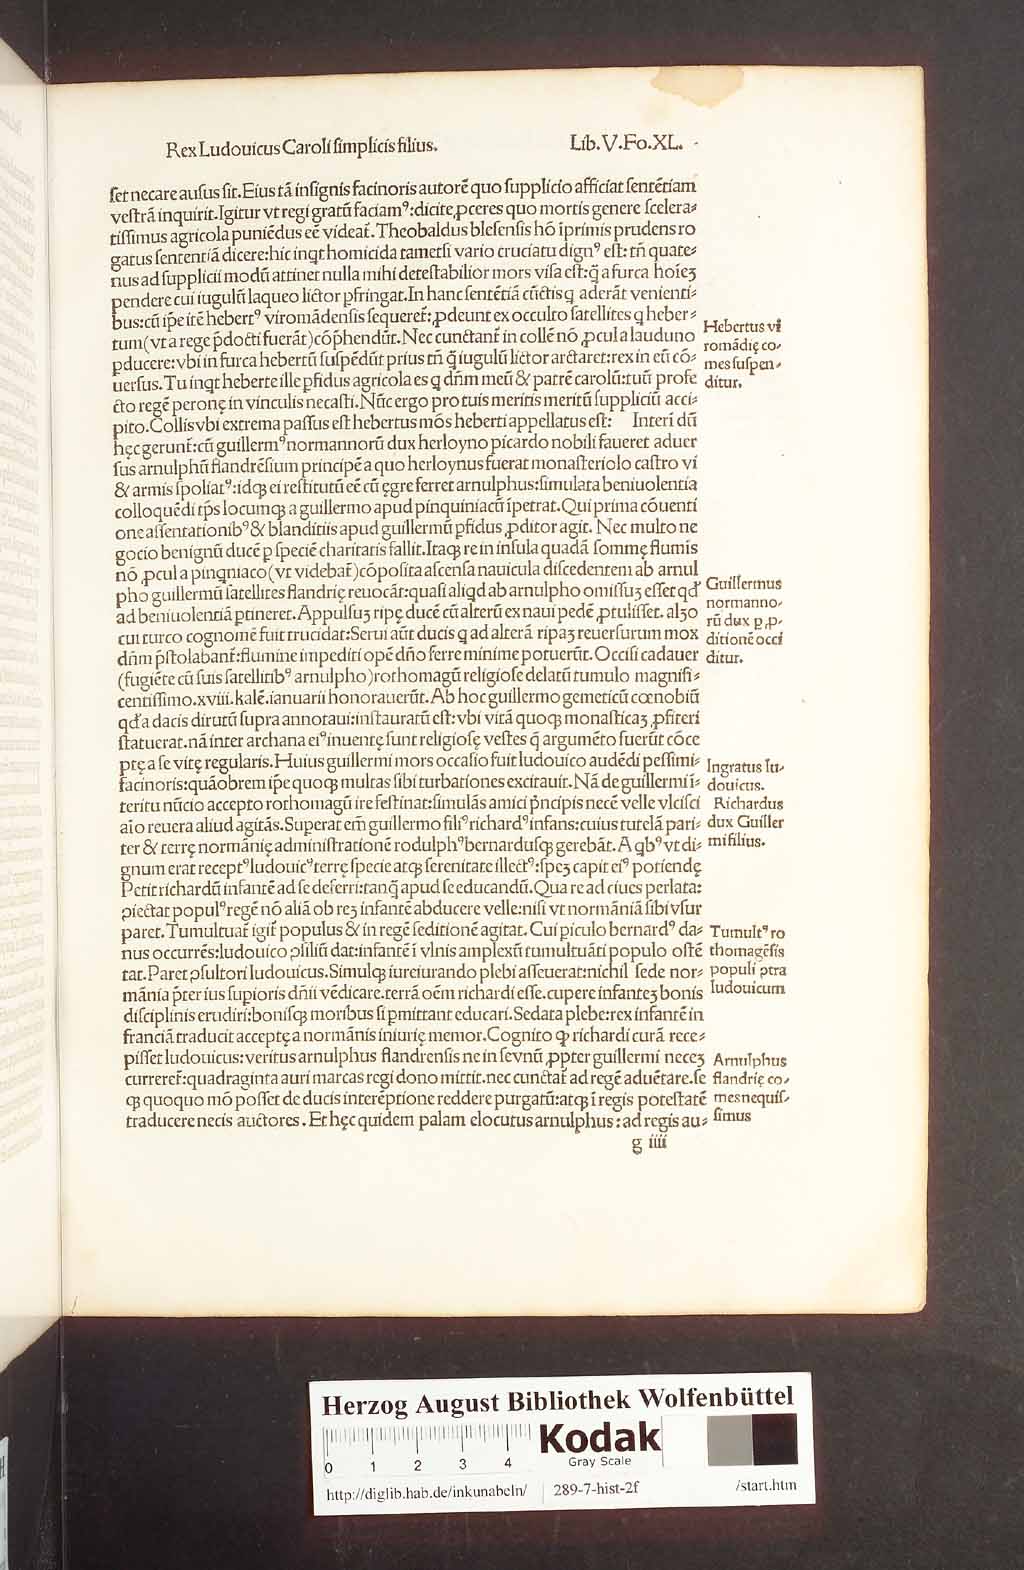 Rex Ludouicus Caroli simplicis filius. Lib. V. Fo. XL.
set necare ausus sit. Eius tā insignis facinoris autorē quo supplicio afficiat sentētiam
vestrā inquirit. Igitur vt regi gratū faciamꝰ: dicite ꝓceres quo mortis genere scelera⸗
tissimus agricola puniēdus eē videat᷑. Theobaldus blesensis hō īprimis prudens ro
gatus sententiā dicere: hic inqt homicida tametsi vario cruciatu dignꝰ est: tñ quate⸗
nus ad supplicii modū attinet nulla mihi detestabilior mors visa est: q̄ a furca hoīeꝫ
pendere cui iugulū laqueo lictor pfringat. In hanc sentētiā cūctis q aderāt venienti⸗
bus: cū ip̄e itē hebertꝰ viromādensis sequeret᷑: ꝓdeunt ex occulto satellites q heber⸗
tum (vt a rege p̄docti fuerāt) cōp̄hendūt. Nec cunctant᷑ in collē nō ꝓcul a lauduno
pducere: vbi in furca hebertū suspēdūt prius tñ q̄ iugulū lictor arctaret: rex in eū cō⸗
uersus. Tu inqt heberte ille pfidus agricola es q dñm meū & patrē carolū: tuū profe
cto regē peronę in vinculis necasti. Nūc ergo pro tuis meritis meritū suppliciū acci⸗
pito. Collis vbi extrema passus est hebertus mōs heberti appellatus est: Interi dū
hęc gerunt᷑: cū guillermꝰ normannorū dux herloyno picardo nobili faueret aduer
sus arnulphū flandrēsium principē a quo herloynus fuerat monasteriolo castro vi
& armis spoliatꝰ: idqꝫ ei restitutū eē cū ęgre ferret arnulphus: simulata beniuolentia
colloquēdi tp̄s locumqꝫ a guillermo apud pinquiniacū īpetrat. Qui prima cōuenti
one assentationibꝰ & blanditiis apud guillermū pfidus ꝓditor agit. Nec multo ne
gocio benignū ducē p speciē charitatis fallit. Itaqꝫ re in insula quadā sommę flumis
nō ꝓcul a pinqniaco (vt videbat᷑) cōposita ascensa nauicula discedentem ab arnul
pho guillermū satellites flandrię reuocāt: quasi aliqd ab arnulpho omissuꝫ esset qd᷑
ad beniuolentiā ptineret. Appulsuꝫ ripę ducē cū alterū ex naui pedē ꝓtulisset. alꝫo
cui turco cognomē fuit trucidat: Serui aūt ducis q ad alterā ripaꝫ reuersurum mox
dñm p̄stolabant᷑: flumine impediti opē dño ferre minime potuerūt. Occisi cadauer
(fugiēte cū suis satellitibꝰ arnulpho) rothomagū religiose delatū tumulo magnifi⸗
centissimo. xviii. kalē. ianuarii honorauerūt. Ab hoc guillermo gemeticū cœnobiū
qd᷑ a dacis dirutū supra annotaui: instauratū est: vbi vitā quoqꝫ monasticaꝫ ꝓfiteri
statuerat. nā inter archana eiꝰ inuentę sunt religiosę vestes q̄ argumēto fuerūt cōce
ptę a se vitę regularis. Huius guillermi mors occasio fuit ludouico audēdi pessimi⸗
facinoris: quāobrem ip̄e quoqꝫ multas sibi turbationes excitauit. Nā de guillermi ī⸗
teritu nūcio accepto rothomagū ire festinat: simulās amici p̄ncipis necē velle vlcisci
aīo reuera aliud agitās. Superat em̄ guillermo filiꝰ richardꝰ infans: cuius tutelā pari⸗
ter & terrę normānię administrationē rodulphꝰ bernardusqꝫ gerebāt. A qbꝰ vt di⸗
gnum erat receptꝰ ludouicꝰ terrę specie atqꝫ serenitate illectꝰ: speꝫ capit eiꝰ potiendę
Petit richardū infantē ad se deferri: tanq̄ apud se educandū. Qua re ad ciues perlata:
ꝯiectat populꝰ regē nō aliā ob reꝫ infantē abducere velle: nisi vt normāniā sibi vsur
paret. Tumultuat᷑ igit᷑ populus & in regē seditionē agitat. Cui piculo bernardꝰ da⸗
nus occurrēs: ludouico ꝯsiliū dat: infantē ī vlnis amplexū tumultuāti populo ostē
tat. Paret ꝯsultori ludouicus. Simulqꝫ iureiurando plebi asseuerat: nichil sede nor⸗
mānia p̄ter ius supioris dñii vēdicare. terrā oēm richardi esse. cupere infanteꝫ bonis
disciplinis erudiri: bonisqꝫ moribus si pmittant educari. Sedata plebe: rex infantē in
franciā traducit acceptę a normānis iniurię memor. Cognito ꝙ richardi curā rece⸗
pisset ludouicus: veritus arnulphus flandrensis ne in sevnū ꝓpter guillermi neceꝫ
curreret᷑: quadraginta auri marcas regi dono mittit. nec cunctat᷑ ad regē aduētare. se
qꝫ quoquo mō posset de ducis interēptione reddere purgatū: atqꝫ ī regis potestatē
traducere necis auctores. Et hęc quidem palam elocutus arnulphus: ad regis au⸗
g iiii
Hebertus vi
romādię co⸗
mes suspen⸗
ditur.
Guillermus
normanno⸗
rū dux p ꝓ⸗
ditionē occi
ditur.
Ingratus lu⸗
douicus.
Richardus
dux Guiller
mi filius.
Tumultꝰ ro
thomagēsis
populi ꝯtra
ludouicum
Arnulphus
flandrię co⸗
mes nequis⸗
simus
Herzog August Bibliothek Wolfenbüttel
0 1 2 3 4
Kodak
Gray Scale
http://diglib.hab.de/inkunabeln/ 289-7-hist-2f /start.htm